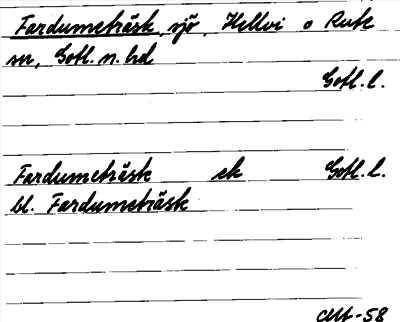 Fardumeträsk, sjö, Hellvi o Rute
sn, Gotl. n. hd
Gotl. l.
Fardumeträsk ek Gotl. l.
bl. Fardumeträsk
-58